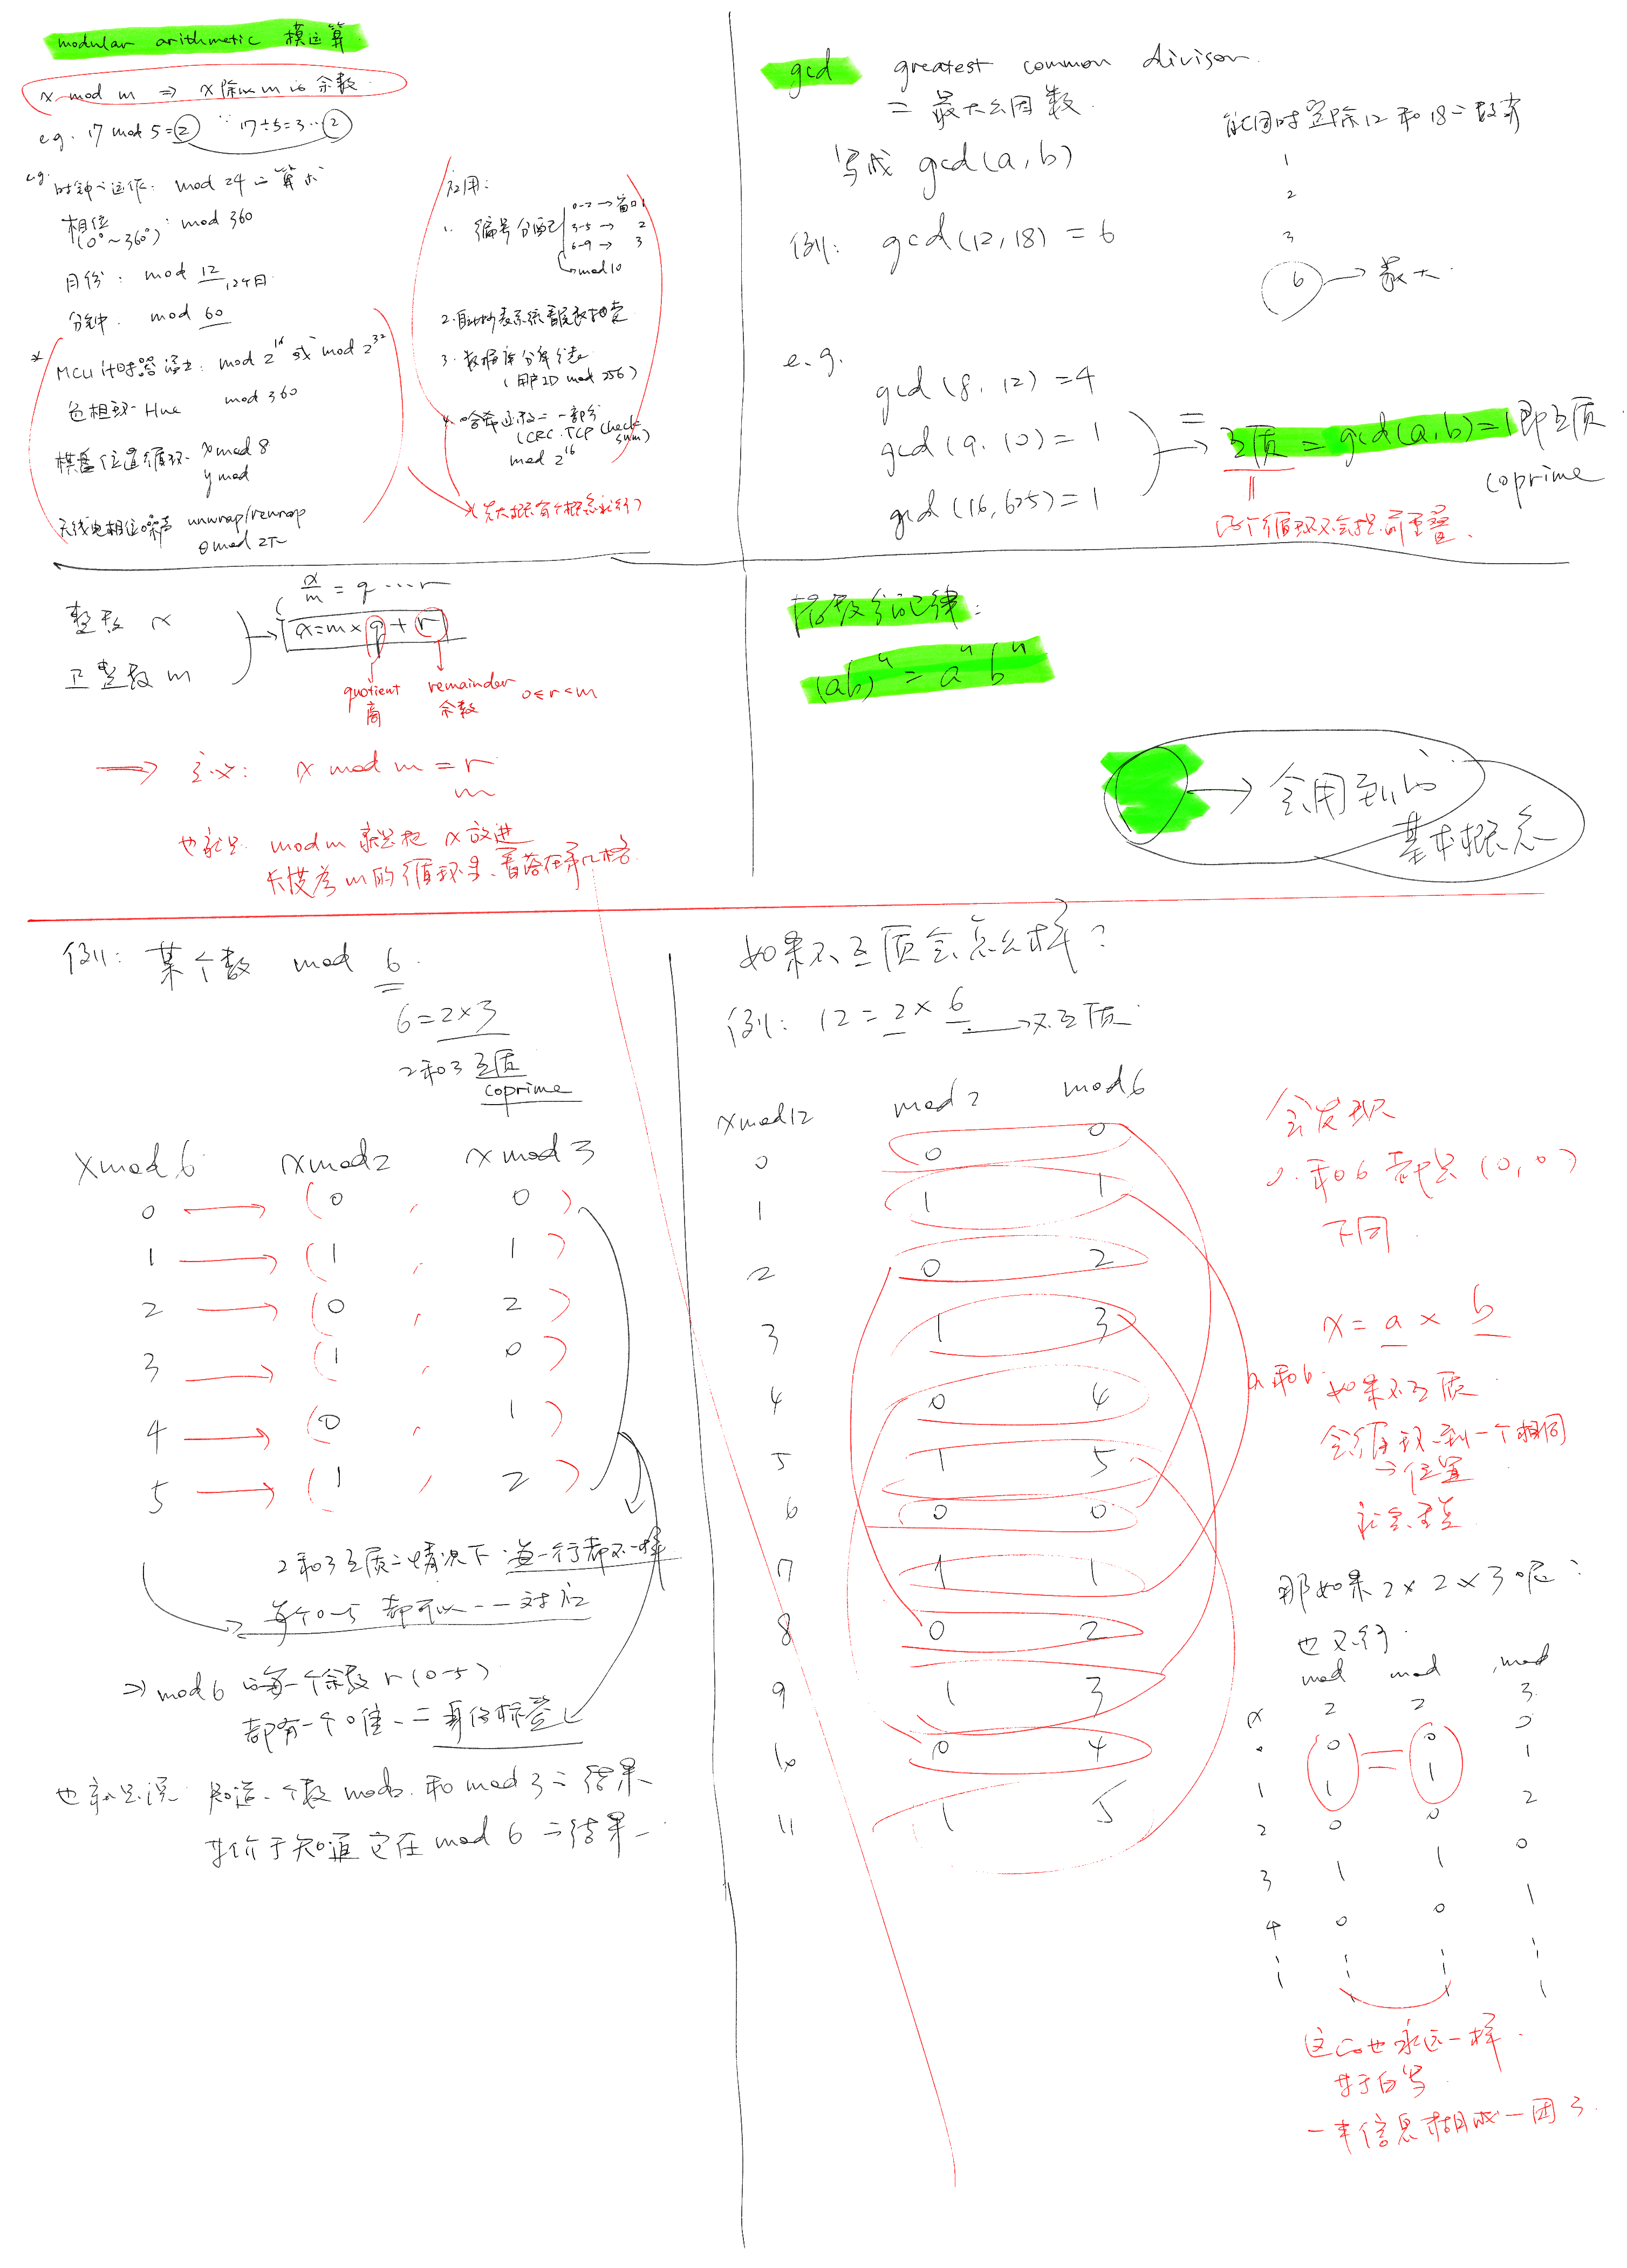 modular arithmetic 模运算
x mod m ⇒ x 除以 m 的余数.
e.g. 17 mod 5 = 2 ∵ 17÷5=3…2
e.g. 时钟的运作: mod 24 的算术
相位: mod 360
(0°~360°)
月份: mod 12
12个月
分钟. mod 60
* MCU 计时器溢出: mod 2^16 或 mod 2^32
色相环 Hue mod 360
棋盘位置循环. x mod 8
y mod
无线电相位噪声 unwrap/rewrap
θ mod 2π
应用:
1. 编号分配 0-2 → 窗口1
3-5 → 2
6-9 → 3
mod 10
3. 数据库分库分表
(用户ID mod 256)
4. 哈希函数的一部分
(CRC. TCP check
sum)
mod 2^16
(先大概有个概念就行)
gcd greatest common divisor.
= 最大公因数.
写成 gcd(a,b)
例: gcd(12,18) = 6
能同时整除12和18的数有
1
2
3
6 → 最大.
e.g.
gcd(8.12)=4
gcd(9.10)=1
gcd(16,625)=1
互质 = gcd(a,b)=1 即互质
coprime
两个循环不会提前重叠.
整数 x
正整数 m
x/m = q … r
x=m×q+r
quotient
商
remainder
余数
0≤r<m
→ 定义: x mod m = r
m
也就是 mod m 就是把 x 放进
长度为m的循环里、看落在第几格
指数分配律:
(ab)^n = a^n b^n
→ 会用到的
基本概念
例: 某个数 mod 6.
6=2×3
2和3 互质
coprime
x mod 6 x mod 2 x mod 3
0 → (0 , 0)
1 → (1 , 1)
2 → (0 , 2)
3 → (1 , 0)
4 → (0 , 1)
5 → (1 , 2)
2和3互质的情况下.每一行都不一样
每个0-5 都可以一一对应
⇒ mod 6 的每一个余数 r (0-5)
都有一个唯一的身份标签
也就是说 知道一个数 mod 2. 和 mod 3 的结果
等价于知道它在 mod 6 的结果
如果不互质会怎么样?
例: 12 = 2 × 6 → 不互质.
x mod 12 mod 2 mod 6
0 0 0
1 1 1
2 0 2
3 1 3
4 0 4
5 1 5
6 0 0
7 1 1
8 0 2
9 1 3
10 0 4
11 1 5
会发现
0.和6 都是 (0,0)
下同
x = a × b
a和b 如果不互质
会循环到一个相同
的位置
就会重叠
那如果 2×2×3 呢?
也不行.
mod mod mod
x 2 2 3
0 0 0 0
1 1 1 1
2 0 0 2
3 1 1 0
4 0 0 1
这俩也永远一样.
等于白写
一半信息糊成一团了.